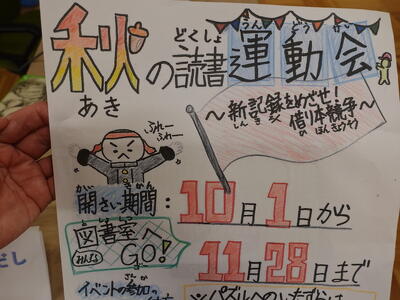 秋の読書運動会
あき どくしょ うんどうかい
〜新記録をめざせ!
しんきろく
借り本競争〜
ふれー ふれー
開さい期間:10月1日から
かい きかん
図書室へ
みんな GO!
11月28日まで
さんか
イベントの参加の
※パズルへのいたずらは
だし